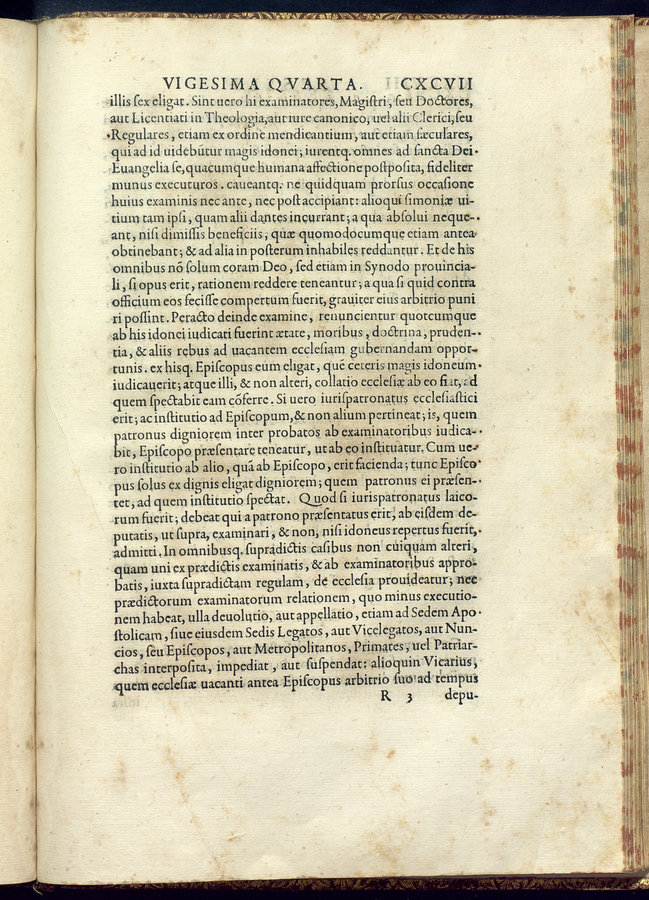 VIGESIMA QVARTA. CXCVII
illis sex eligat. Sint uero hi examinatores, Magistri, seu Doctores,
aut Licentiati in Theologia, aut iure canonico; uel alii Clerici, seu
Regulares, etiam ex ordine mendicantium, aut etiam sæculares,
qui ad id uidebūtur magis idonei; iurentq. omnes ad sancta Dei
Euangelia se, quacumque humana affectione postposita, fideliter
munus executuros. caueantq. ne quidquam prorsus occasione
huius examinis nec ante, nec post accipiant: alioqui simoniæ ui-
tium tam ipsi, quam alii dantes incurrant; a qua absolui neque-
ant, nisi dimissis beneficiis, quæ quomodocumque etiam antea
obtinebant; & ad alia in posterum inhabiles reddantur. Et de his
omnibus nō solum coram Deo, sed etiam in Synodo prouincia-
li, si opus erit, rationem reddere teneantur; a qua si quid contra
officium eos fecisse compertum fuerit, grauiter eius arbitrio puni
ri possint. Peracto deinde examine, renuncientur quotcumque
ab his idonei iudicati fuerint ætate, moribus, doctrina, pruden-
tia, & aliis rebus ad uacantem ecclesiam gubernandam oppor-
tunis. ex hisq. Episcopus eum eligat, quē ceteris magis idoneum
iudicauerit; atque illi, & non alteri, collatio ecclesiæ ab eo fiat, ad
quem spectabit eam cōferre. Si uero iurispatronatus ecclesiastici
erit; ac institutio ad Episcopum, & non alium pertineat; is, quem
patronus digniorem inter probatos ab examinatoribus iudica-
bit, Episcopo præsentare teneatur, ut ab eo instituatur. Cum ue-
ro institutio ab alio, quā ab Episcopo, erit facienda; tunc Episco
pus solus ex dignis eligat digniorem; quem patronus ei præsen-
tet, ad quem institutio spectat. Quod si iurispatronatus laico-
rum fuerit; debeat qui a patrono præsentatus erit, ab eisdem de-
putatis, ut supra, examinari, & non, nisi idoneus repertus fuerit,
admitti. In omnibusq. supradictis casibus non cuiquam alteri,
quam uni ex prædictis examinatis, & ab examinatoribus appro-
batis, iuxta supradictam regulam, de ecclesia prouideatur; nec
prædictorum examinatorum relationem, quo minus executio-
nem habeat, ulla deuolutio, aut appellatio, etiam ad Sedem Apo
stolicam, siue eiusdem Sedis Legatos, aut Vicelegatos, aut Nun-
cios, seu Episcopos, aut Metropolitanos, Primates, uel Patriar-
chas interposita, impediat, aut suspendat: alioquin Vicarius,
quem ecclesiæ uacanti antea Episcopus arbitrio suo ad tempus
R 3 depu-